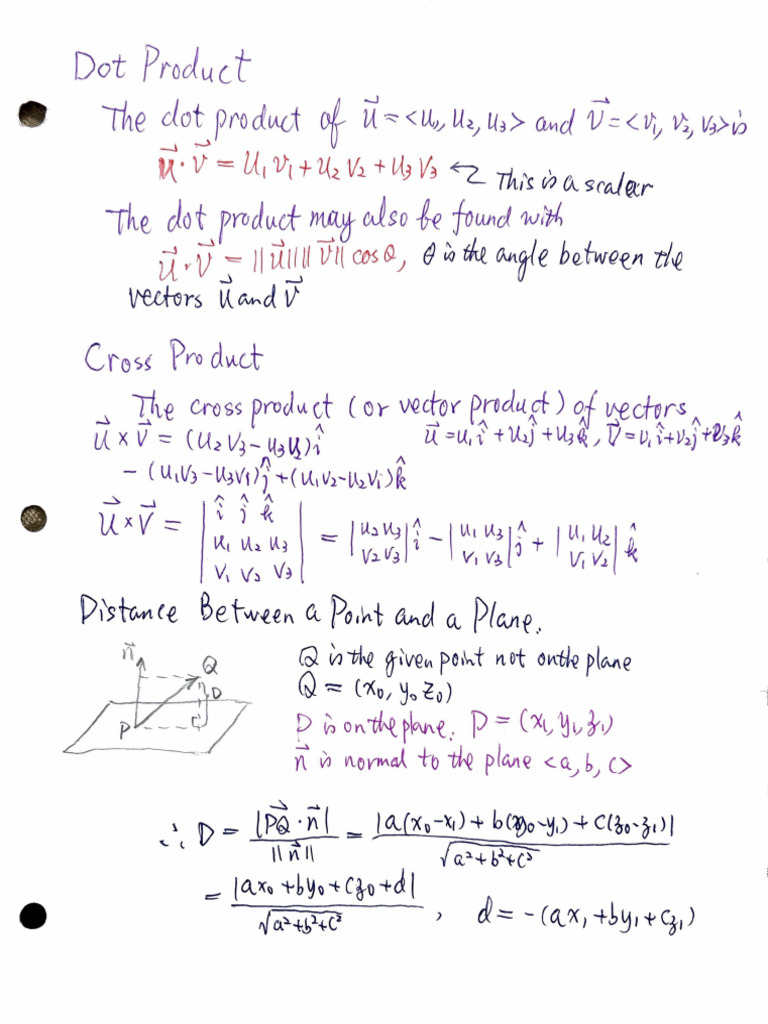 Dot Product
The dot product of u⃗ = <u1, u2, u3> and v⃗ = <v1, v2, v3> is
u⃗ · v⃗ = u1 v1 + u2 v2 + u3 v3 ← This is a scalar
The dot product may also be found with
u⃗ · v⃗ = ||u⃗|| ||v⃗|| cos θ, θ is the angle between the
vectors u⃗ and v⃗
Cross Product
The cross product (or vector product) of vectors
u⃗ = u1 î + u2 ĵ + u3 k̂, v⃗ = v1 î + v2 ĵ + v3 k̂
u⃗ × v⃗ = (u2 v3 - u3 v2) î
- (u1 v3 - u3 v1) ĵ + (u1 v2 - u2 v1) k̂
u⃗ × v⃗ = | î ĵ k̂ | = | u2 u3 | î - | u1 u3 | ĵ + | u1 u2 | k̂
| u1 u2 u3 | | v2 v3 | | v1 v3 | | v1 v2 |
| v1 v2 v3 |
Distance Between a Point and a Plane.
n⃗ Q D P
Q is the given point not on the plane
Q = (x0, y0 z0)
P is on the plane. P = (x1, y1, z1)
n⃗ is normal to the plane <a, b, c>
∴ D = |PQ⃗ · n⃗| / ||n⃗|| = |a(x0 - x1) + b(y0 - y1) + c(z0 - z1)| / √(a² + b² + c²)
= |ax0 + by0 + cz0 + d| / √(a² + b² + c²) , d = -(ax1 + by1 + cz1)